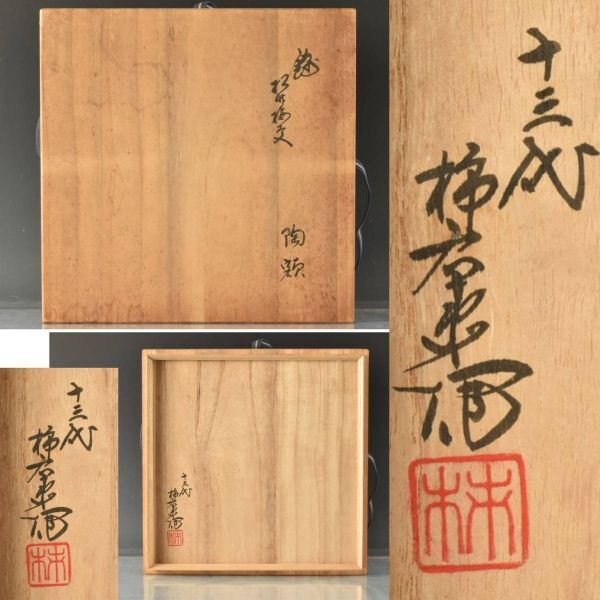 錦
松竹梅文
陶額
十三代
柿右衛門
十三代
柿右衛門
十三代
柿右衛門